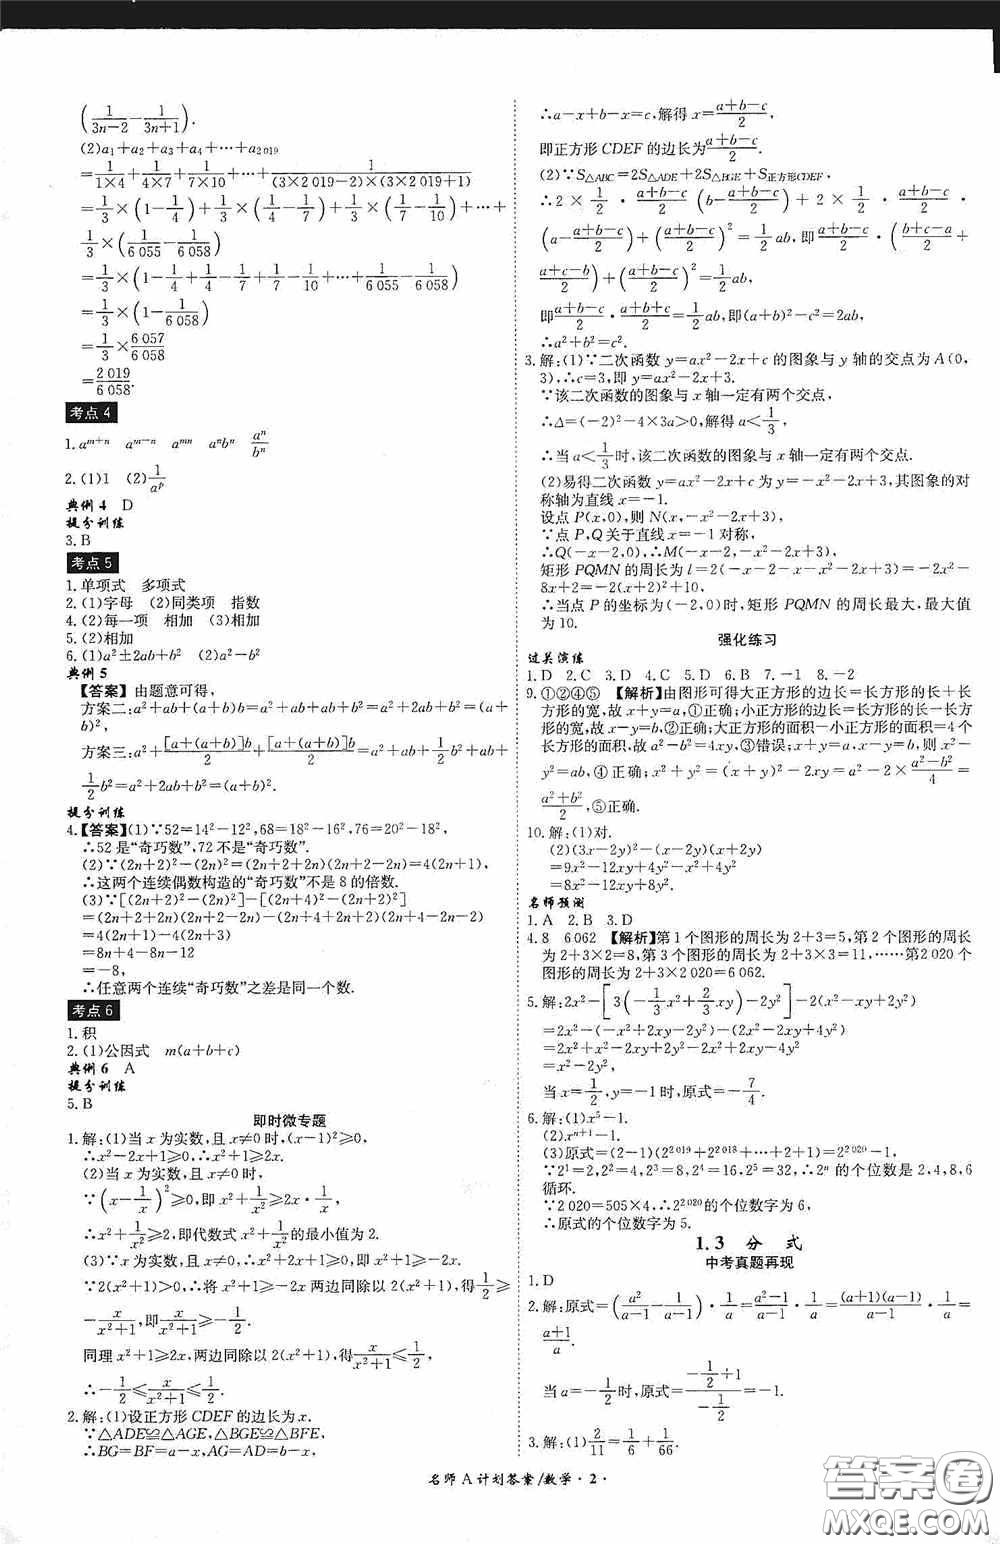 (1/(3n−2)−1/(3n+1)).
(2)a₁+a₂+a₃+a₄+⋯+a₂₀₁₉
=1/(1×4)+1/(4×7)+1/(7×10)+⋯+1/((3×2 019−2)×(3×2 019+1))
=1/3×(1−1/4)+1/3×(1/4−1/7)+1/3×(1/7−1/10)+⋯+
1/3×(1/6 055−1/6 058)
=1/3×(1−1/4+1/4−1/7+1/7−1/10+⋯+1/6 055−1/6 058)
=1/3×(1−1/6 058)
=1/3×6 057/6 058
=2 019/6 058.
考点 4
1.aᵐ⁺ⁿ aᵐ⁻ⁿ aᵐⁿ aⁿbⁿ aⁿ/bⁿ
2.(1)1 (2)1/aᵖ
典例 4 D
提分训练
3.B
考点 5
1.单项式 多项式
2.(1)字母 (2)同类项 指数
4.(2)每一项 相加 (3)相加
5.(2)相加
6.(1)a²±2ab+b² (2)a²−b²
典例 5
【答案】由题意可得,
方案二:a²+ab+(a+b)b=a²+ab+ab+b²=a²+2ab+b²=(a+
b)²,
方案三:a²+[a+(a+b)]b/2+[a+(a+b)]b/2=a²+ab+1/2b²+ab+
1/2b²=a²+2ab+b²=(a+b)².
提分训练
4.【答案】(1)∵52=14²−12²,68=18²−16²,76=20²−18²,
∴52是“奇巧数”,72不是“奇巧数”.
(2)∵(2n+2)²−(2n)²=(2n+2+2n)(2n+2−2n)=4(2n+1),
∴这两个连续偶数构造的“奇巧数”不是8的倍数.
(3)∵[(2n+2)²−(2n)²]−[(2n+4)²−(2n+2)²]
=(2n+2+2n)(2n+2−2n)−(2n+4+2n+2)(2n+4−2n−2)
=4(2n+1)−4(2n+3)
=8n+4−8n−12
=−8,
∴任意两个连续“奇巧数”之差是同一个数.
考点 6
1.积
2.(1)公因式 m(a+b+c)
典例 6 A
提分训练
5.B
即时微专题
1.解:(1)当x为实数,且x≠0时,(x−1)²⩾0,
∴x²−2x+1⩾0,∴x²+1⩾2x.
(2)当x为实数,且x≠0时,
∵(x−1/x)²⩾0,即x²+1/x²⩾2x·1/x,
∴x²+1/x²⩾2,即代数式x²+1/x²的最小值为2.
(3)∵x为实数,且x≠0,∴(x+1)²⩾0,即x²+1⩾−2x.
∵2(x²+1)>0,∴将x²+1⩾−2x两边同除以2(x²+1),得1/2⩾
−x/(x²+1),即x/(x²+1)⩾−1/2.
同理x²+1⩾2x,两边同除以2(x²+1),得x/(x²+1)⩽1/2,
∴−1/2⩽x/(x²+1)⩽1/2.
2.解:(1)设正方形CDEF的边长为x.
∵△ADE≌△AGE,△BGE≌△BFE,
∴BG=BF=a−x,AG=AD=b−x,
∴a−x+b−x=c,解得x=(a+b−c)/2,
即正方形CDEF的边长为(a+b−c)/2.
(2)∵S△ABC=2S△ADE+2S△BGE+S正方形CDEF,
∴2×1/2·(a+b−c)/2(b−(a+b−c)/2)+2×1/2·(a+b−c)/2
(a−(a+b−c)/2)+((a+b−c)/2)²=1/2ab,即(a+b−c)/2·((b+c−a)/2+
(a+c−b)/2)+((a+b−c)/2)²=1/2ab,
即(a+b−c)/2·(a+b+c)/2=1/2ab,即(a+b)²−c²=2ab,
∴a²+b²=c².
3.解:(1)∵二次函数y=ax²−2x+c的图象与y轴的交点为A(0,
3),∴c=3,即y=ax²−2x+3.
∵该二次函数的图象与x轴一定有两个交点,
∴Δ=(−2)²−4×3a>0,解得a<1/3,
∴当a<1/3时,该二次函数的图象与x轴一定有两个交点.
(2)易得二次函数y=ax²−2x+c为y=−x²−2x+3,其图象的对
称轴为直线x=−1.
设点P(x,0),则N(x,−x²−2x+3),
∵点P,Q关于直线x=−1对称,
∴Q(−x−2,0),∴M(−x−2,−x²−2x+3),
矩形PQMN的周长为l=2(−x−2−x−x²−2x+3)=−2x²−
8x+2=−2(x+2)²+10,
∴当点P的坐标为(−2,0)时,矩形PQMN的周长最大,最大值
为10.
强化练习
过关演练
1.D 2.C 3.D 4.C 5.D 6.B 7.−1 8.−2
9.①②④⑤ 【解析】由图形可得大正方形的边长=长方形的长+长
方形的宽,故x+y=a,①正确;小正方形的边长=长方形的长−长方
形的宽,故x−y=b,②正确;大正方形的面积−小正方形的面积=4个
长方形的面积,故a²−b²=4xy,③错误;x+y=a,x−y=b,则x²−
y²=ab,④正确;x²+y²=(x+y)²−2xy=a²−2×(a²−b²)/4=
(a²+b²)/2,⑤正确.
10.解:(1)对.
(2)(3x−2y)²−(x−2y)(x+2y)
=9x²−12xy+4y²−x²+4y²
=8x²−12xy+8y².
名师预测
1.A 2.B 3.D
4.8 6 062 【解析】第1个图形的周长为2+3=5,第2个图形的周长
为2+3×2=8,第3个图形的周长为2+3×3=11,……第2 020个
图形的周长为2+3×2 020=6 062.
5.解:2x²−[3(−1/3x²+2/3xy)−2y²]−2(x²−xy+2y²)
=2x²−(−x²+2xy−2y²)−(2x²−2xy+4y²)
=2x²+x²−2xy+2y²−2x²+2xy−4y²
=x²−2y²,
当x=1/2,y=−1时,原式=−7/4.
6.解:(1)x⁵−1.
(2)xⁿ⁺¹−1.
(3)原式=(2−1)(2²⁰¹⁹+2²⁰¹⁸+⋯+2+1)=2²⁰²⁰−1,
∵2¹=2,2²=4,2³=8,2⁴=16,2⁵=32,∴2ⁿ的个位数是2,4,8,6
循环.
∵2 020=505×4,∴2²⁰²⁰的个位数字为6,
∴原式的个位数字为5.
1.3 分 式
中考真题再现
1.D
2.解:原式=(a²/(a−1)−1/(a−1))·1/a=(a²−1)/(a−1)·1/a=(a+1)(a−1)/(a−1)·1/a=
(a+1)/a.
当a=−1/2时,原式=(−1/2+1)/(−1/2)=−1.
3.解:(1)2/11=1/6+1/66.
名师A计划答案/数学·2·
答案圈
MXQE.COM